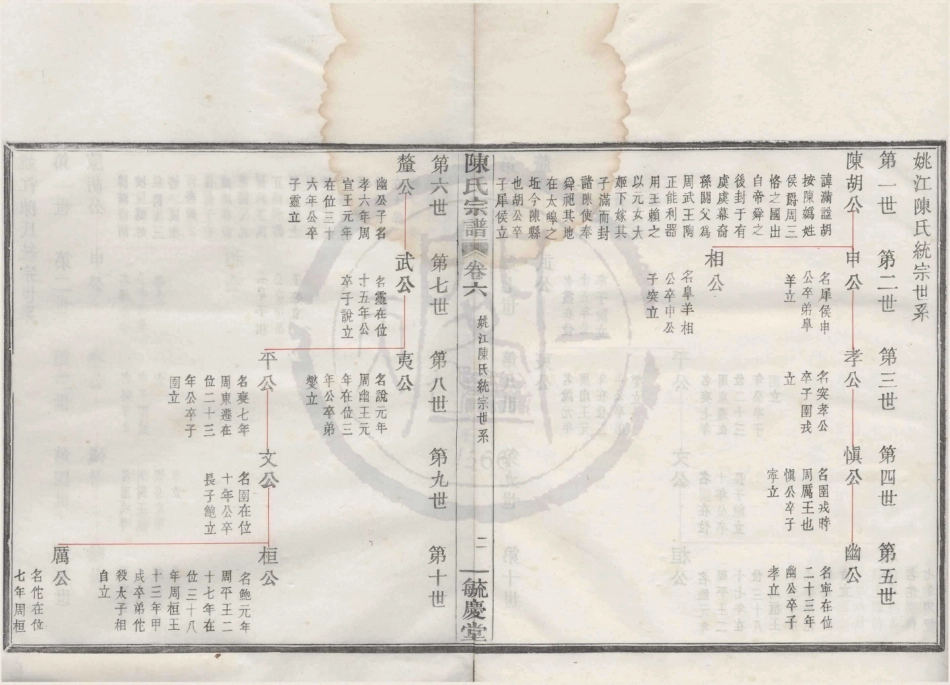 姚江陳氏統宗世系
第一世
第二世
第三世
第四世
第五世
陳胡公
諱滿諡胡
按陳媯姓
侯爵周三
恪之國出
自帝舜之
後封于有
虞虞幕裔
孫閼父為
周武王陶
正能利器
用王賴之
以元女大
姬下嫁其
子滿而封
諸陳使奉
舜祀其地
在太皥之
坵今陳縣
也胡公卒
子犀侯立
申公
名犀侯申
公卒弟臯
羊立
相公
名臯羊相
公卒申公
子突立
孝公
名突孝公
卒子圉戎
立
慎公
名圉戎時
周厲王也
慎公卒子
寧立
幽公
名寧在位
二十三年
幽公卒子
孝立
陳氏宗譜
卷六
姚江陳氏統宗世系
二
毓慶堂
第六世
第七世
第八世
第九世
第十世
釐公
幽公子名
孝六年周
宣王元年
在位三十
六年公卒
子靈立
武公
名靈在位
十五年公
卒子說立
夷公
名說元年
周幽王元
年在位三
年公卒弟
燮立
平公
名燮七年
周東遷在
位二十三
年公卒子
圉立
文公
名圉在位
十年公卒
長子鮑立
桓公
名鮑元年
周平王二
十七年在
位三十八
年周桓王
十三年甲
戌卒弟佗
殺太子相
自立
厲公
名佗在位
七年周桓